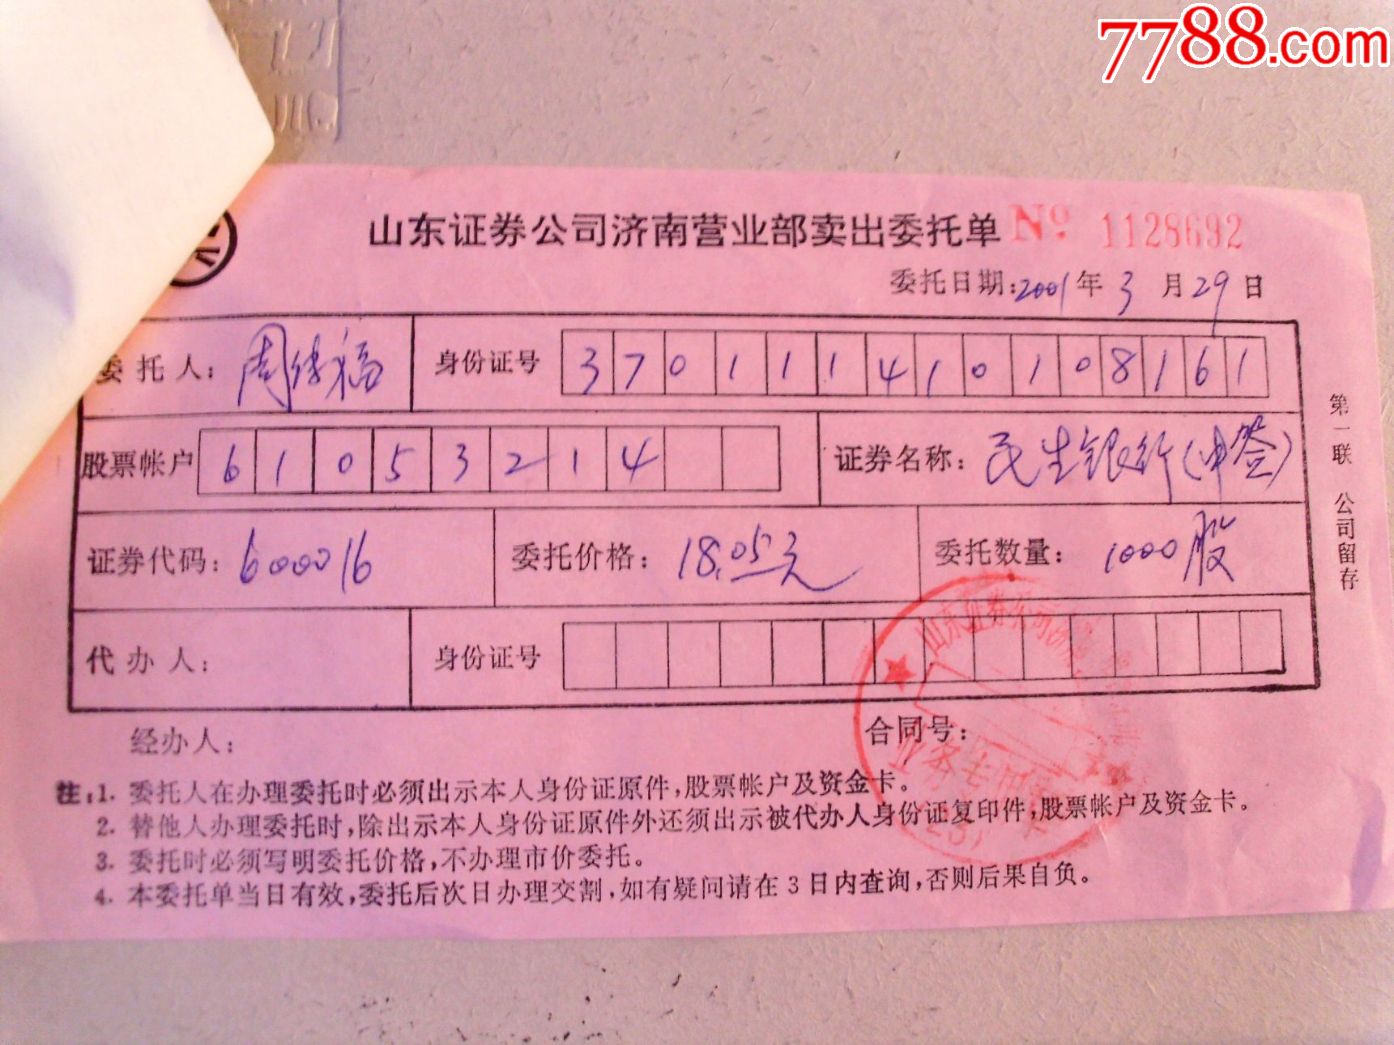 7788.com
山东证券公司济南营业部卖出委托单 № 1128692
委托日期:2001年3月29日
委托人: 周传福 身份证号 370111410108161
股票帐户 61053214 证券名称: 民生银行(中签)
证券代码: 600016 委托价格: 18.05元 委托数量: 1000股
代办人: 身份证号
经办人: 合同号:
注:1. 委托人在办理委托时必须出示本人身份证原件,股票帐户及资金卡。
2. 替他人办理委托时,除出示本人身份证原件外还须出示被代办人身份证复印件,股票帐户及资金卡。
3. 委托时必须写明委托价格,不办理市价委托。
4. 本委托单当日有效,委托后次日办理交割,如有疑问请在3日内查询,否则后果自负。
第一联 公司留存
山东证券公司
业务专用